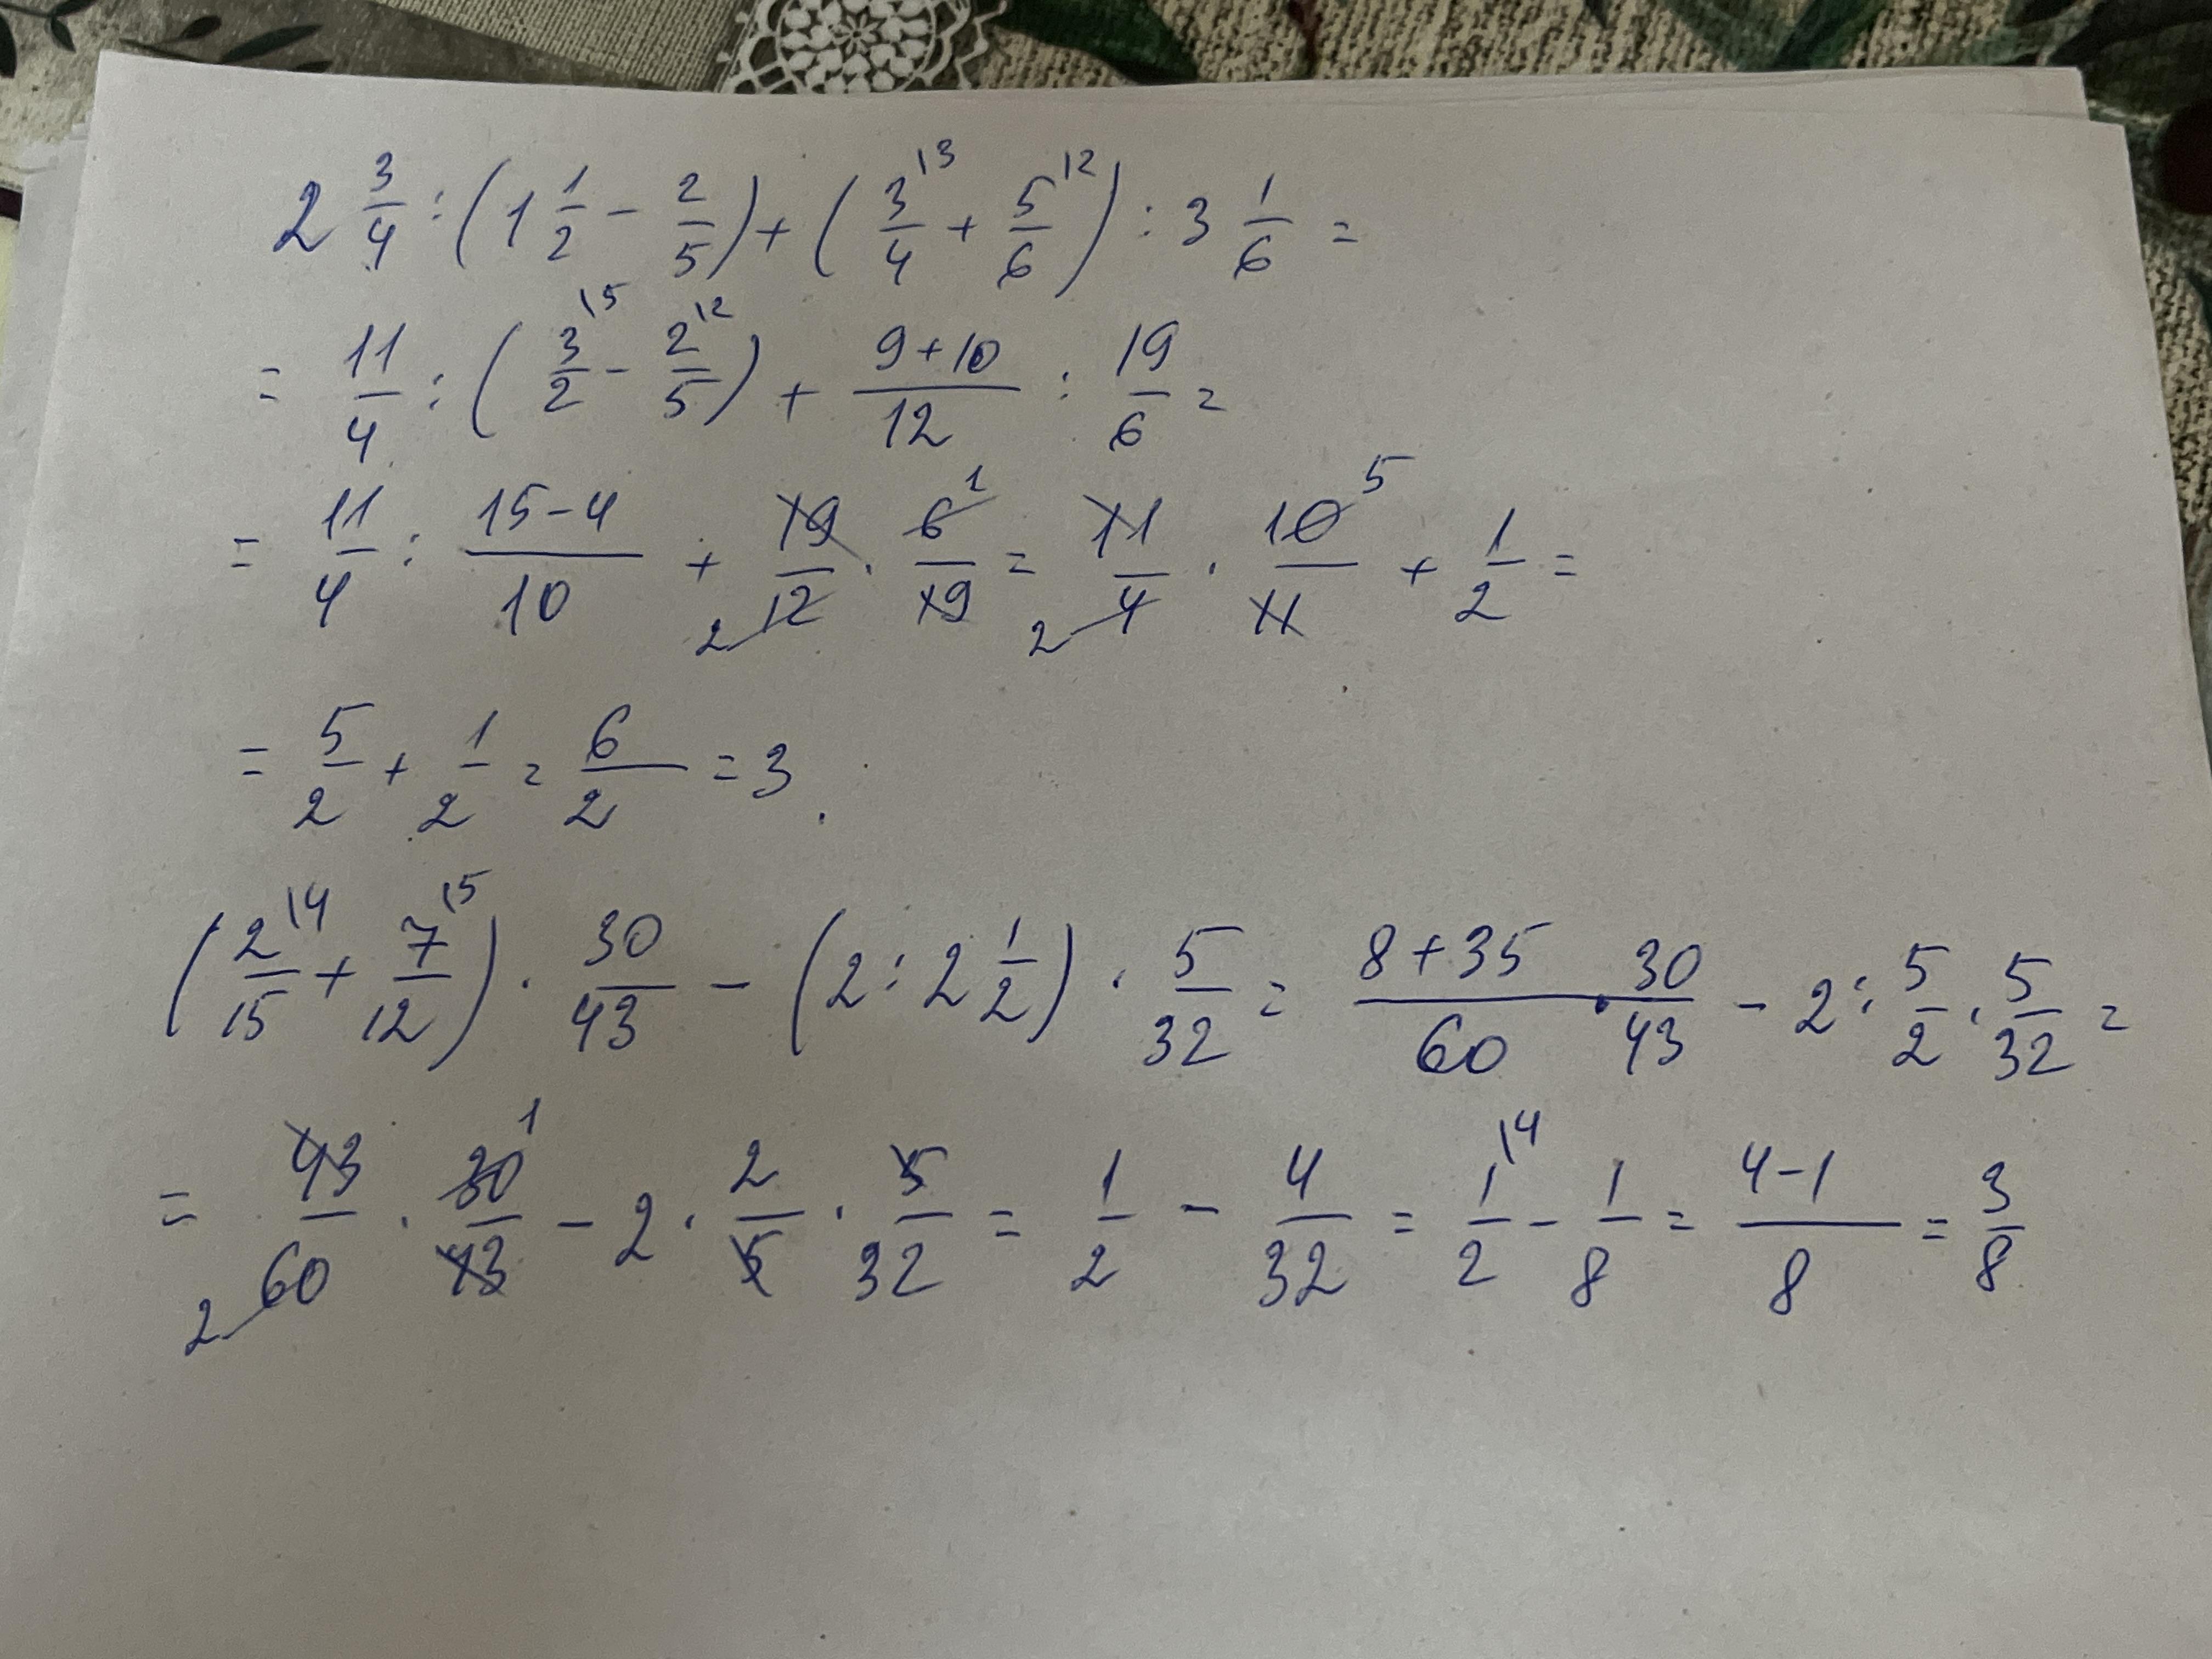 2 3/4 : (1 1/2 - 2/5) + (3\3/4 + 5\2/6) : 3 1/6 =
= 11/4 : (3\5/2 - 2\2/5) + (9+10)/12 : 19/6 =
= 11/4 : (15-4)/10 + 19/12 2 · 6 1/19 = 11/4 2 · 10 5/11 + 1/2 =
= 5/2 + 1/2 = 6/2 = 3.
(2\4/15 + 7\5/12) · 30/43 - (2 : 2 1/2) · 5/32 = (8+35)/60 · 30/43 - 2 : 5/2 · 5/32 =
= 43/60 2 · 30 1/43 - 2 · 2/5 · 5/32 = 1/2 - 4/32 = 1\4/2 - 1/8 = (4-1)/8 = 3/8